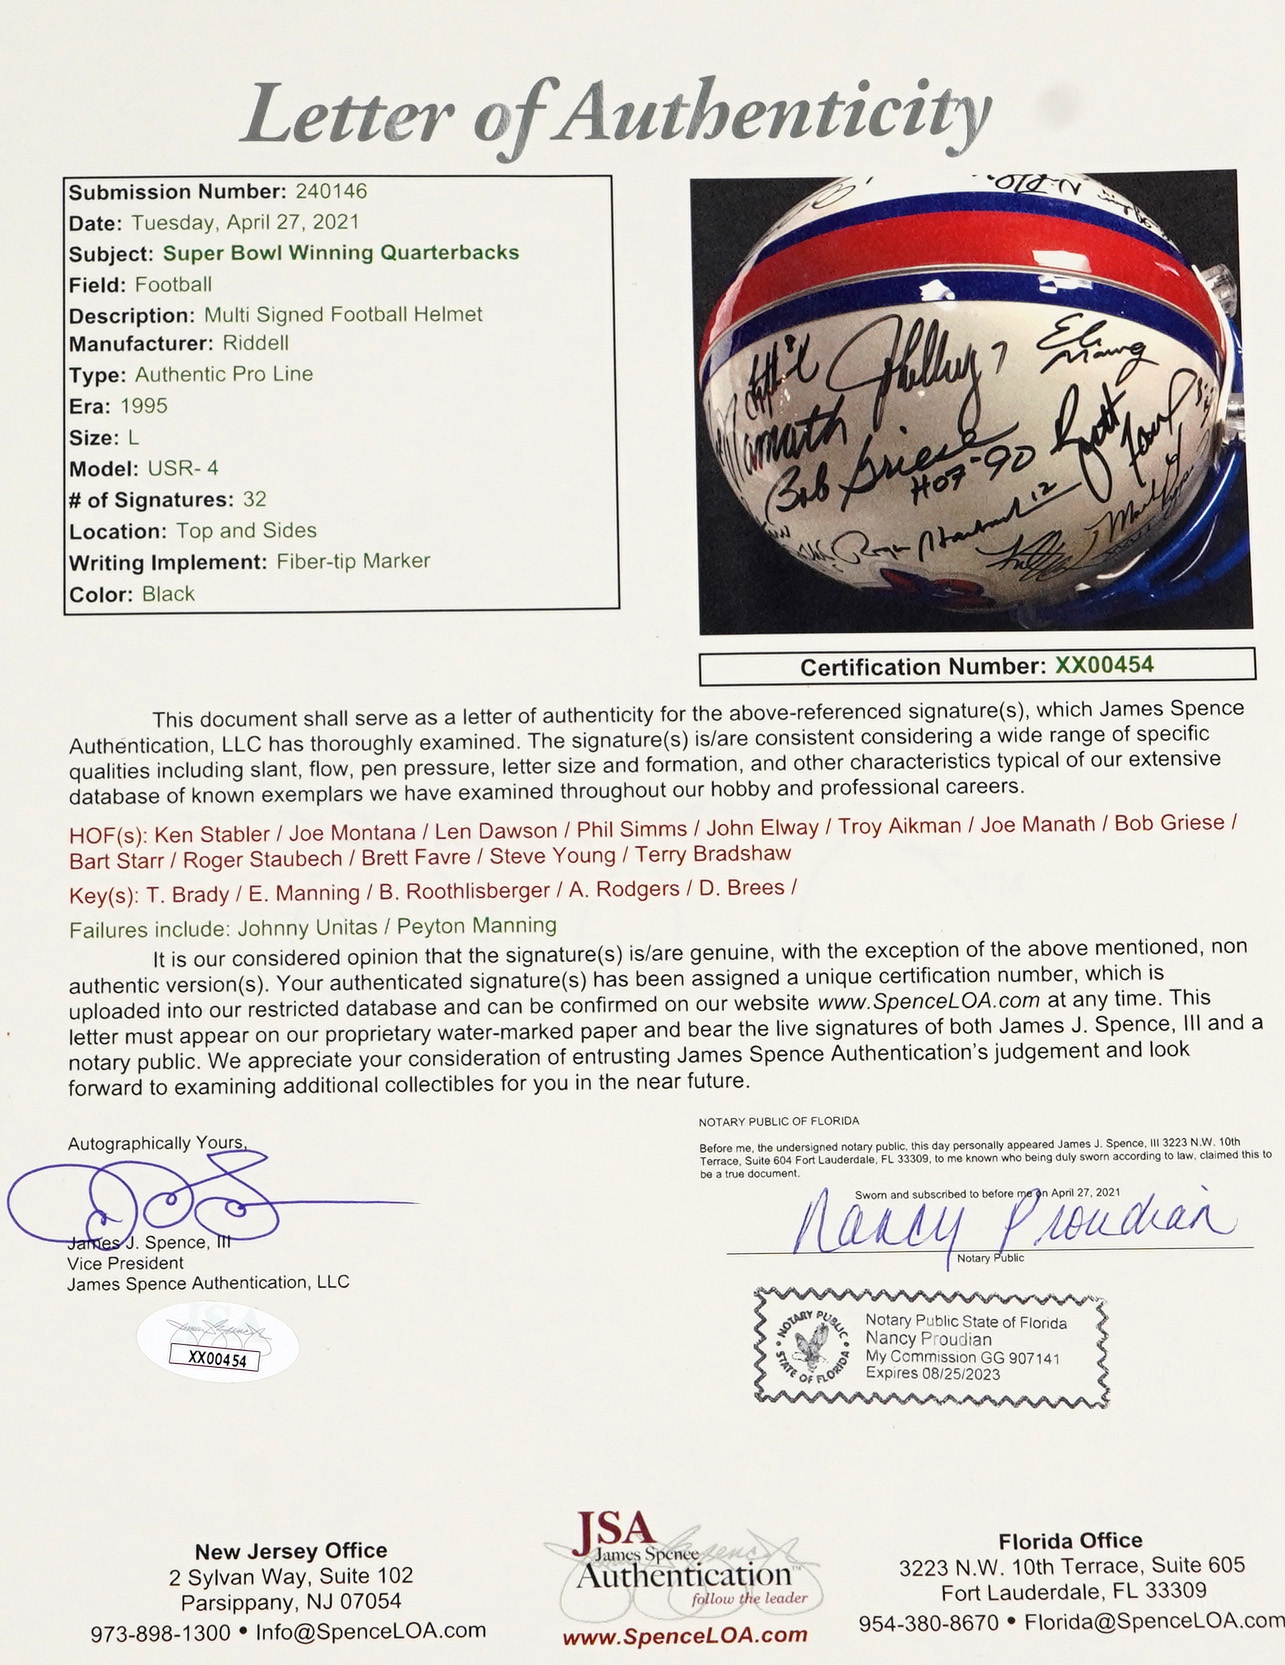 Letter of Authenticity
Submission Number: 240146
Date: Tuesday, April 27, 2021
Subject: Super Bowl Winning Quarterbacks
Field: Football
Description: Multi Signed Football Helmet
Manufacturer: Riddell
Type: Authentic Pro Line
Era: 1995
Size: L
Model: USR- 4
# of Signatures: 32
Location: Top and Sides
Writing Implement: Fiber-tip Marker
Color: Black
7
Eli
Manning
Namath
Bob Griese
HOF-90
Brett
Favre
4
Roger Staubach 12
Mark
Certification Number: XX00454
This document shall serve as a letter of authenticity for the above-referenced signature(s), which James Spence
Authentication, LLC has thoroughly examined. The signature(s) is/are consistent considering a wide range of specific
qualities including slant, flow, pen pressure, letter size and formation, and other characteristics typical of our extensive
database of known exemplars we have examined throughout our hobby and professional careers.
HOF(s): Ken Stabler / Joe Montana / Len Dawson / Phil Simms / John Elway / Troy Aikman / Joe Manath / Bob Griese /
Bart Starr / Roger Staubech / Brett Favre / Steve Young / Terry Bradshaw
Key(s): T. Brady / E. Manning / B. Roothlisberger / A. Rodgers / D. Brees /
Failures include: Johnny Unitas / Peyton Manning
It is our considered opinion that the signature(s) is/are genuine, with the exception of the above mentioned, non
authentic version(s). Your authenticated signature(s) has been assigned a unique certification number, which is
uploaded into our restricted database and can be confirmed on our website www.SpenceLOA.com at any time. This
letter must appear on our proprietary water-marked paper and bear the live signatures of both James J. Spence, III and a
notary public. We appreciate your consideration of entrusting James Spence Authentication's judgement and look
forward to examining additional collectibles for you in the near future.
Autographically Yours,
James J. Spence, III
Vice President
James Spence Authentication, LLC
JSA
XX00454
NOTARY PUBLIC OF FLORIDA
Before me, the undersigned notary public, this day personally appeared James J. Spence, III 3223 N.W. 10th
Terrace, Suite 604 Fort Lauderdale, FL 33309, to me known who being duly sworn according to law, claimed this to
be a true document.
Sworn and subscribed to before me on April 27, 2021
Nancy Proudian
Notary Public
NOTARY PUBLIC
STATE OF FLORIDA
Notary Public State of Florida
Nancy Proudian
My Commission GG 907141
Expires 08/25/2023
New Jersey Office
2 Sylvan Way, Suite 102
Parsippany, NJ 07054
973-898-1300 • Info@SpenceLOA.com
JSA
James Spence
Authentication™
follow the leader
www.SpenceLOA.com
Florida Office
3223 N.W. 10th Terrace, Suite 605
Fort Lauderdale, FL 33309
954-380-8670 • Florida@SpenceLOA.com